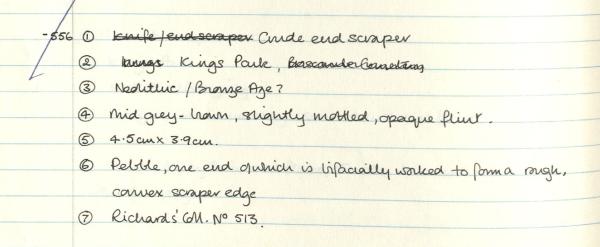 -556 ① knife/end scraper Crude end scraper
② kings Kings Park, Boscombe
③ Neolithic / Bronze Age?
④ Mid grey-brown, slightly mottled, opaque flint.
⑤ 4.5cm x 3.9cm.
⑥ Pebble, one end of which is bifacially worked to form a rough,
convex scraper edge
⑦ Richards' Coll. Nº 513.